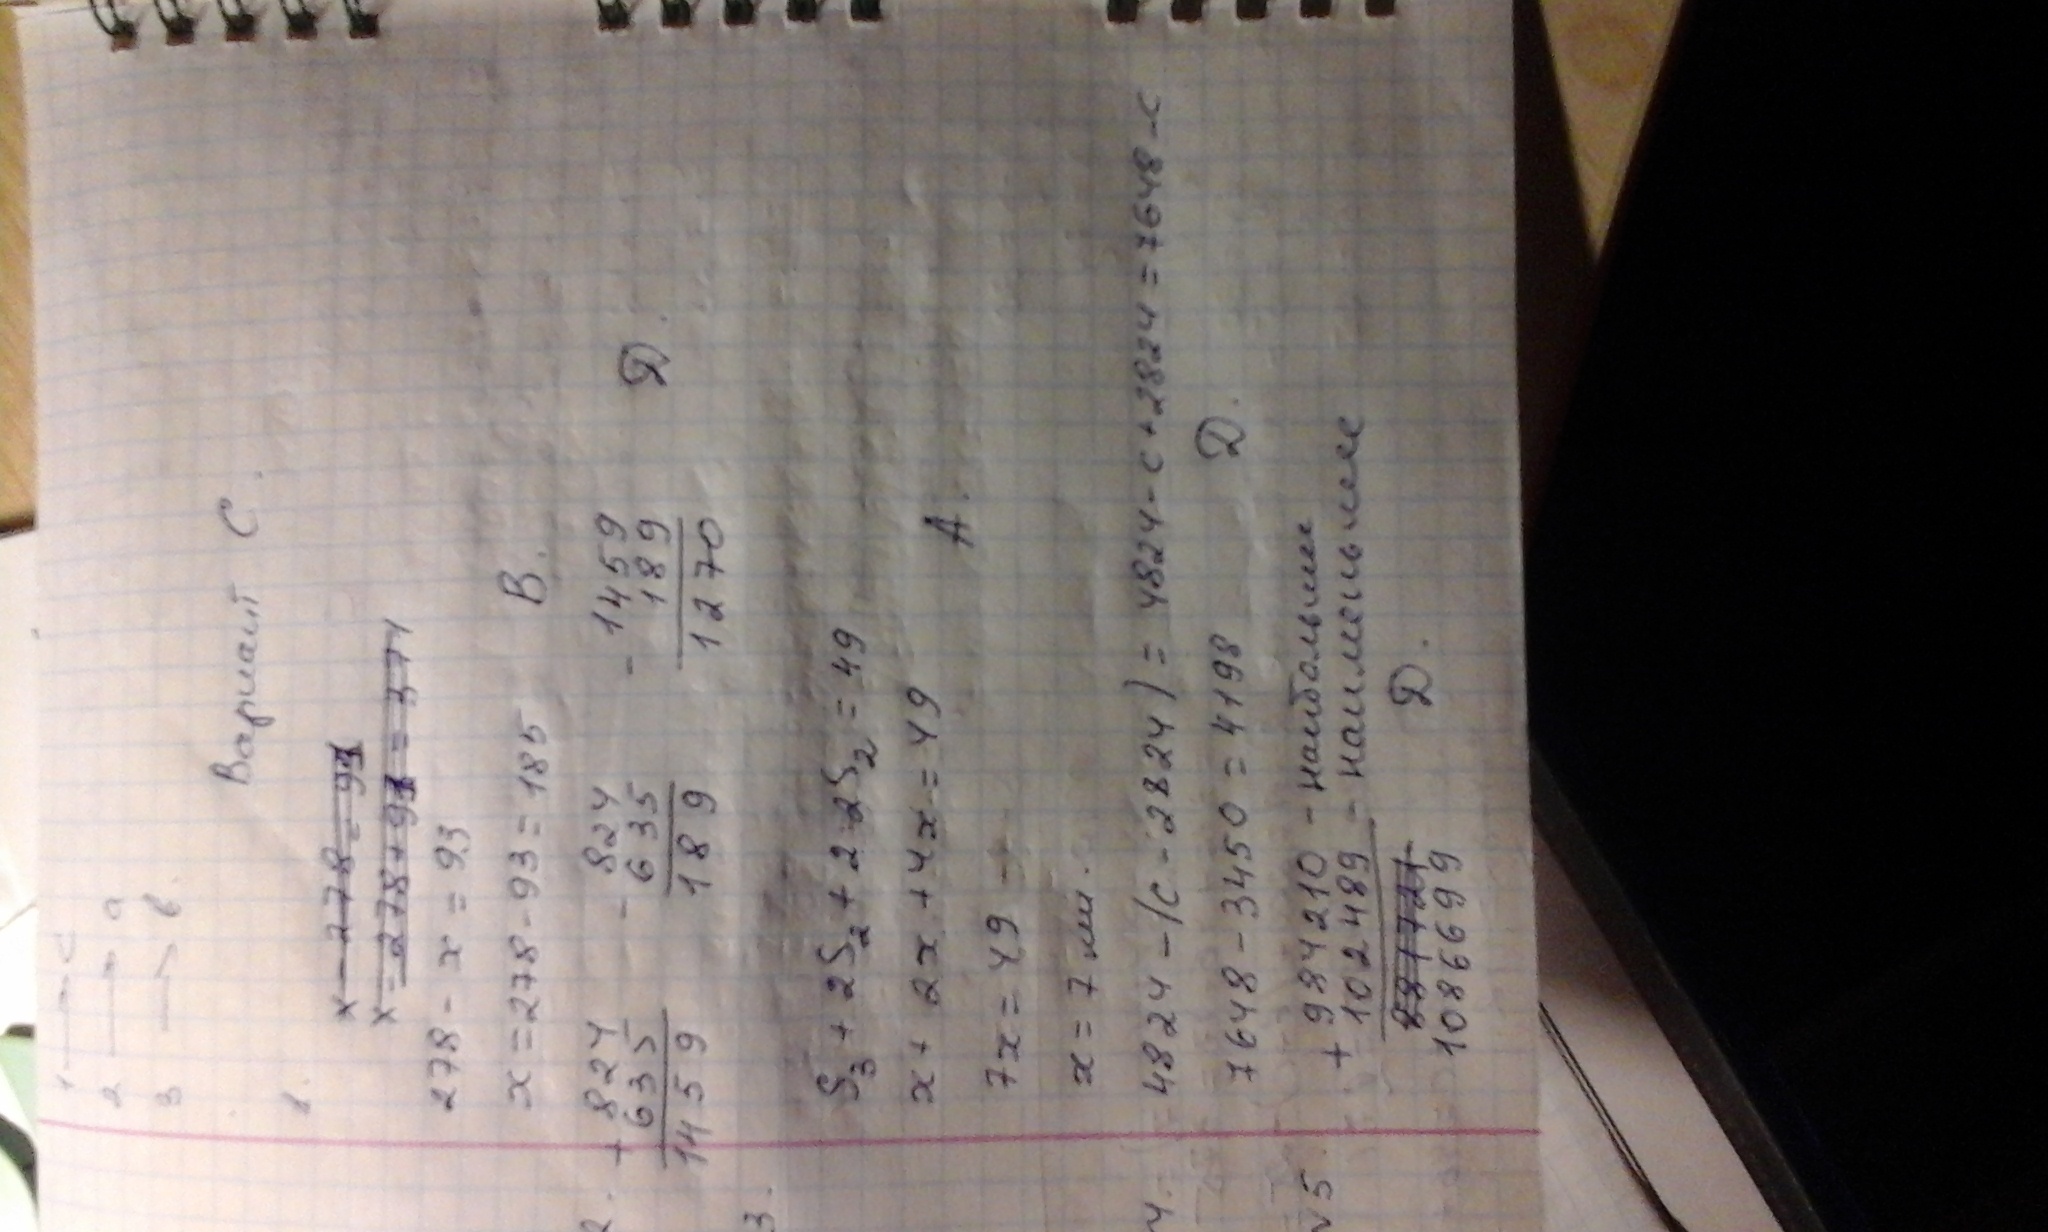 1 → c
2 → a
3 → в.
Вариант С.
1.
x - 278 = 93
x = 278 + 93 = 371
278 - x = 93
x = 278 - 93 = 185
В.
2. + 824 - 824 - 1459
635 635 189
1459 189 1270
D.
3. S₃ + 2S₂ + 2·2S₂ = 49
x + 2x + 4x = 49
7x = 49
А.
x = 7 мм.
4. 4824 - (c - 2824) = 4824 - c + 2824 = 7648 - c
7648 - 3450 = 4198
D.
√5. + 984210 - наибольшее
102489 - наименьшее
1086699
D.